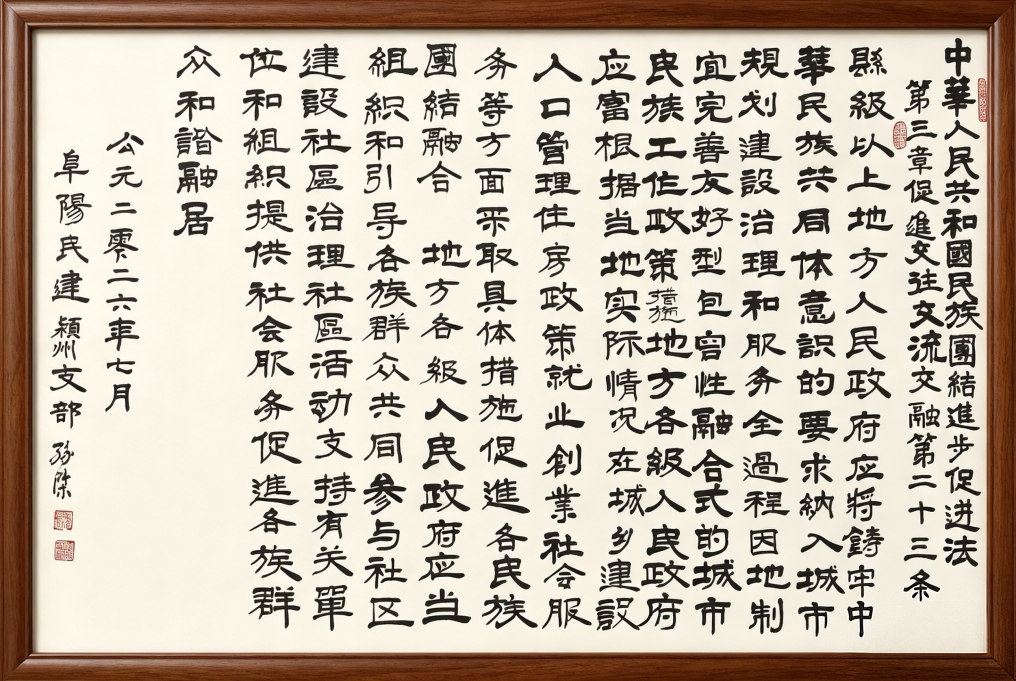 中華人民共和國民族團結進步促进法
第三章促進交往交流交融第二十三条
縣級以上地方人民政府应將鑄牢中
華民族共同体意識的要求納入城市
規划建設治理和服务全過程因地制
宜完善友好型包容性融合式的城市
民族工作政策措施地方各級人民政府
应富根据当地实际情况在城乡建設
人口管理住房政策就业創業社会服
务等方面采取具体措施促進各民族
團結融合 地方各級人民政府应当
組織和引导各族群众共同参与社区
建設社區治理社區活动支持有关單
位和組織提供社会服务促進各族群
众和諧融居
公元二零二六年七月
阜陽民建潁州支部